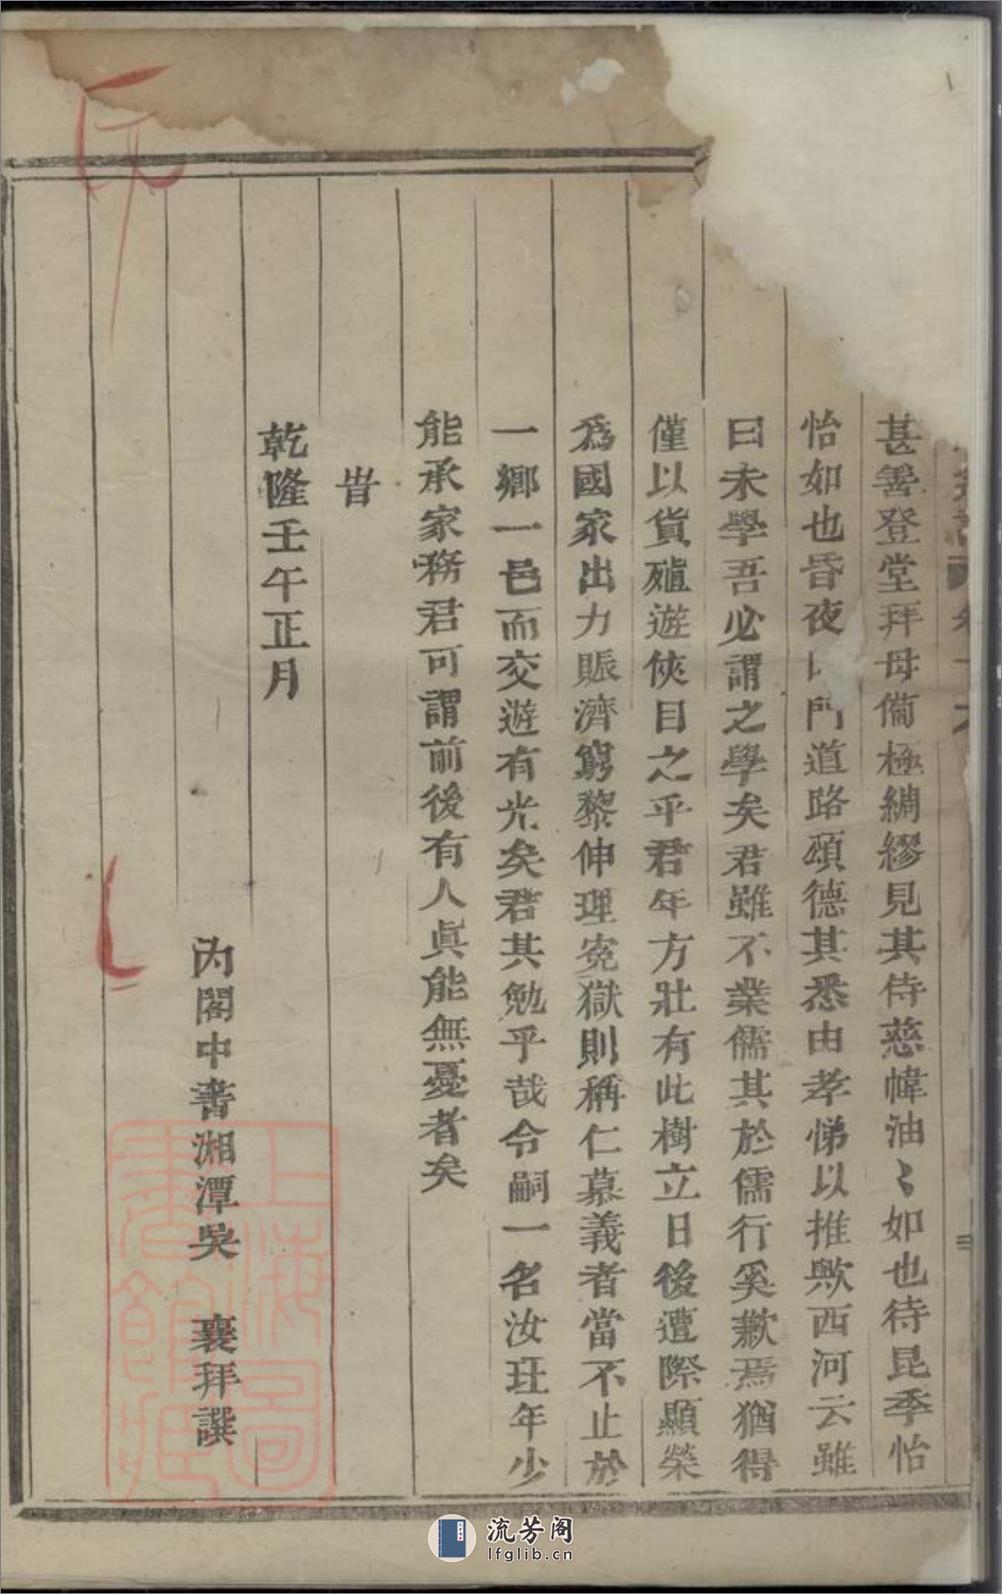 甚善登堂拜母備極綢繆見其侍慈幃油〻如也待昆季怡
怡如也昏夜門道路頌德其悉由孝悌以推歟西河云雖
曰未學吾必謂之學矣君雖不業儒其於儒行奚歉焉猶得
僅以貨殖遊俠目之乎君年方壯有此樹立日後遭際顯榮
為國家出力賑濟窮黎伸理寃獄則稱仁慕義者當不止於
一鄉一邑而交遊有光矣君其勉乎哉令嗣一名汝玨年少
能承家務君可謂前後有人眞能無憂者矣
旹
乾隆壬午正月
內閣中書湘潭吳 襄拜譔
上海圖書館藏
流芳阁
lfglib.cn